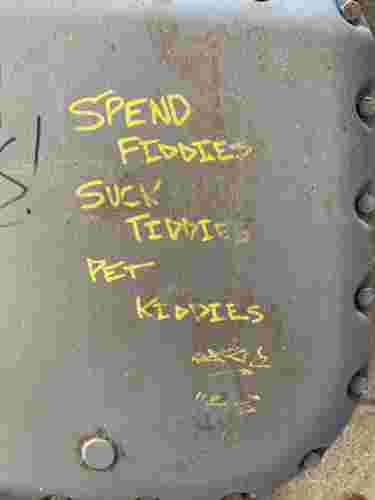 SPEND
FIDDIES
SUCK
TIDDIES
PET
KIDDIES